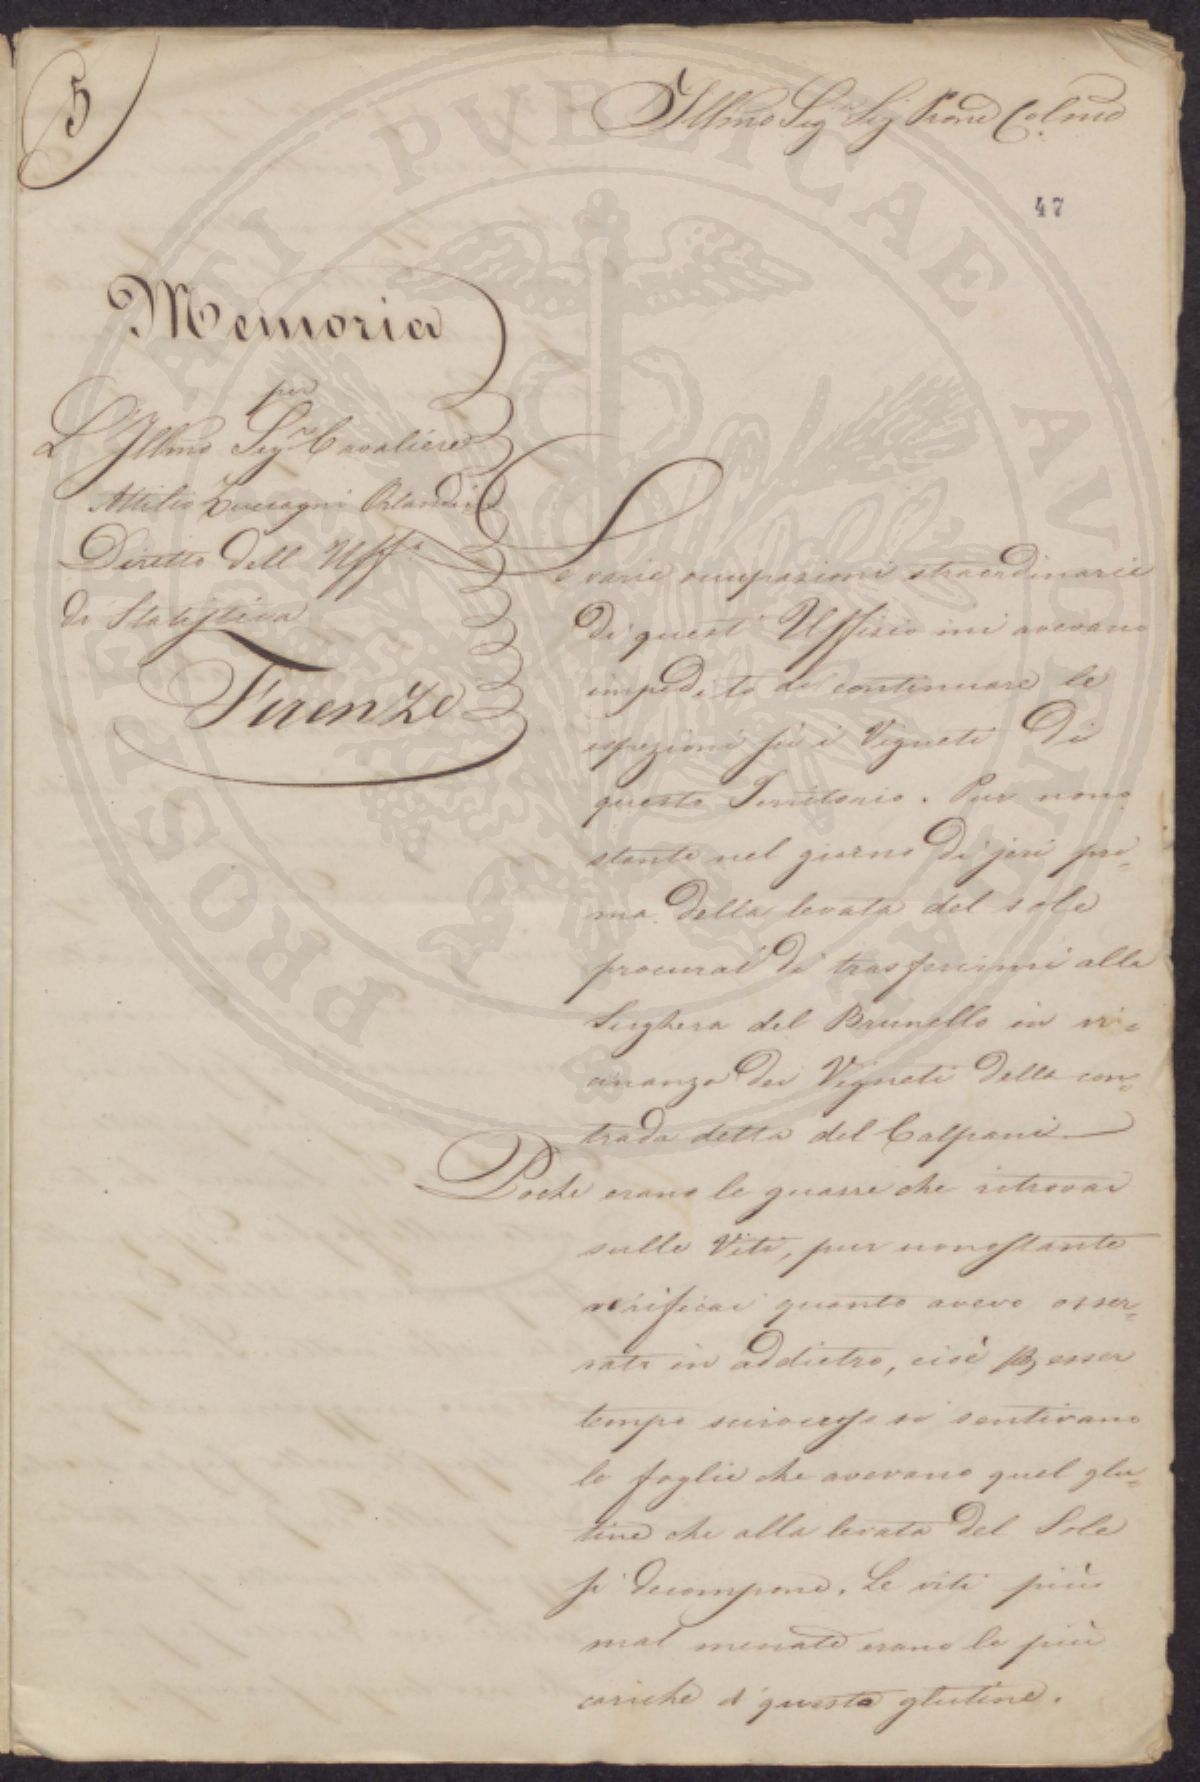 5
Illmo Sigr Sig Prone Colmo
47
Memoria
per
L'Illmo Sigre Cavaliere
Attilio Zuccagni Orlandini
Diretto dell Uffo
di Statistica
Firenze
Le varie occupazioni straordinarie
di quest' Uffizio mi avevano
impedito di continuare le
ispezioni su i Vigneti di
questo Territorio. Pur nono
stante nel giorno di jeri pri=
ma della levata del sole
procurai di trasferirmi alla
Sughera del Brunello in vi=
cinanza dei Vigneti della con=
trada detta del Calpani
Poche erano le guasse che ritrovai
sulle Viti, pur nonostante
verificai quanto avevo osser=
vato in addietro, cioè p esser
tempo sciroccoso si sentivano
le foglie che avevano quel glu=
tine che alla levata del Sole
si decompone. Le viti più
mal menate erano le più
cariche di questo glutine.
PROSPERITATI PVBLICAE AVGENDAE